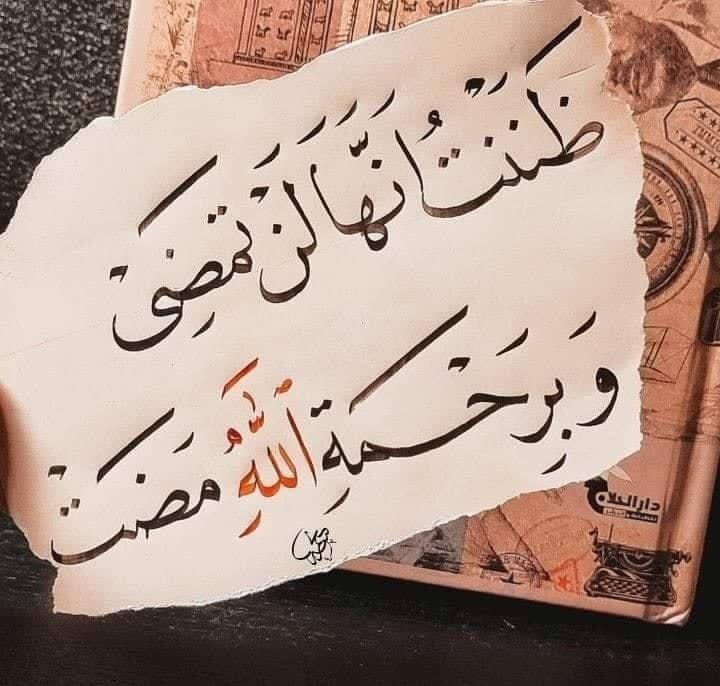 ظَنَنْتُ أنَّهَا لَنْ تَمضِيَ
وَبِرَحْمَةِ ٱللَّهِ مَضَتْ
دار الحلاج